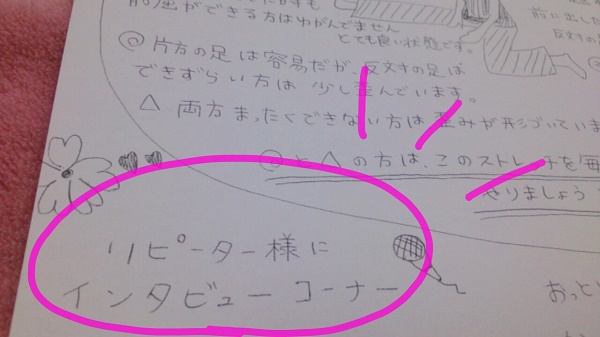 前屈ができる方はゆがんでません
とても良い状態です。
前に出した
反対の
◎ 片方の足は容易だが、反対の足は
できずらい方は 少し歪んでいます。
△ 両方まったくできない方は 歪みが形づいていま
◎と△の方は、このストレッチを毎
やりましょう
リピーター様に
インタビューコーナー
おっと